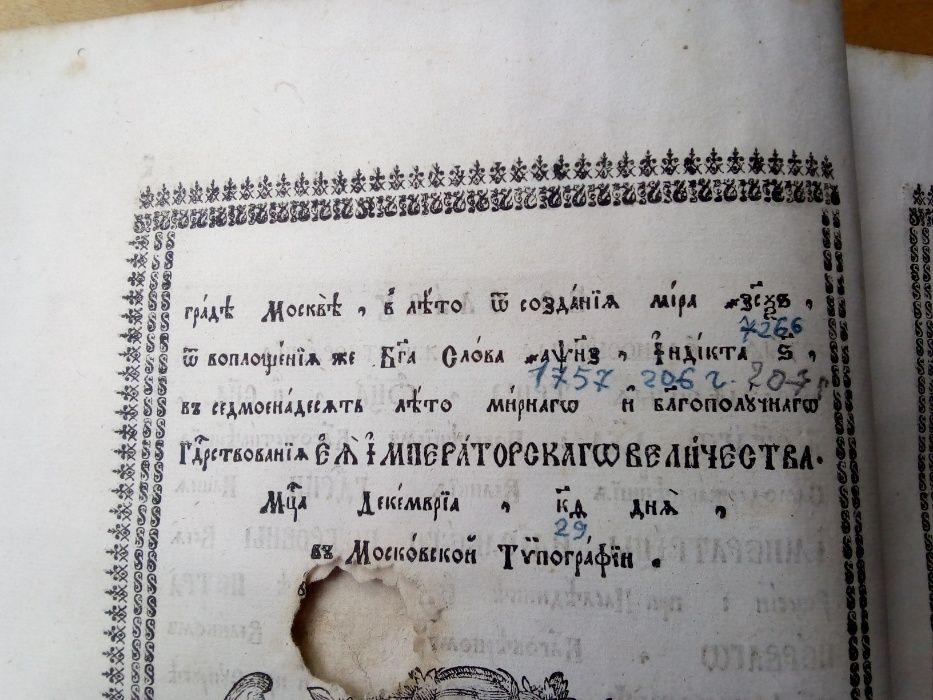 гра́дѣ Москвѣ̀ , в̾ лѣ́то ѿ созда́нїѧ мі́ра ҂зс҃ѯѕ ,
7266
ѿ воплоще́нїѧ же Бг҃а Сло́ва ҂аѱн҃з , І҆нді́кта ѕ҃ ,
1757 206 г. 207 г
въ седмоенадесѧть лѣ́то ми́рнагѡ и҆ благополꙋ́чнагѡ
Гдⷭ҇рствованїѧ Еѧ̀ І҆мпера́торскагѡ вели́чества.
Мц҃а Деке́мврїа , к҃ѳ днѧ̀ ,
29
въ Моско́вской Тѷпогра́фїи .